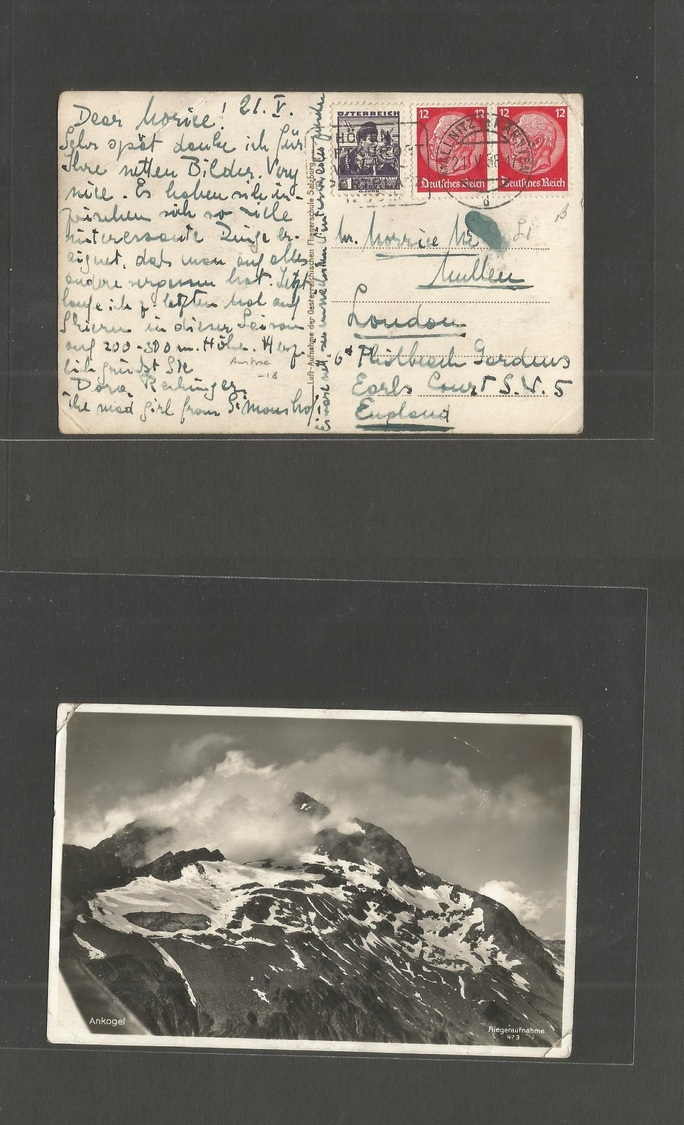 Dear Morice! 21. V.
Sehr spät danke ich für
Ihre netten Bilder. Very
nice. Es haben sich in-
zwischen sich so viele
interessante Dinge er-
eignet, daß man auf alles
andere vergessen hat. Jetzt
laufe ich z. letzten mal auf
Skiern in dieser Saison
auf 200-300 m. Höhe. Herz-
lich grüßt Sie
Dora
the mad girl from Simonshof
Austria
-18
Luft-Aufnahme der Oesterreichischen Fliegerschule Salzburg
ÖSTERREICH
12 12
Deutsches Reich
12 12
Deutsches Reich
MALLNITZ KÄRNTEN
Mr. Morrice Mc
Mullen
London
6a Philbeach Gardens
Earls Court S.W. 5
England
Ankogel
Fliegeraufnahme
473